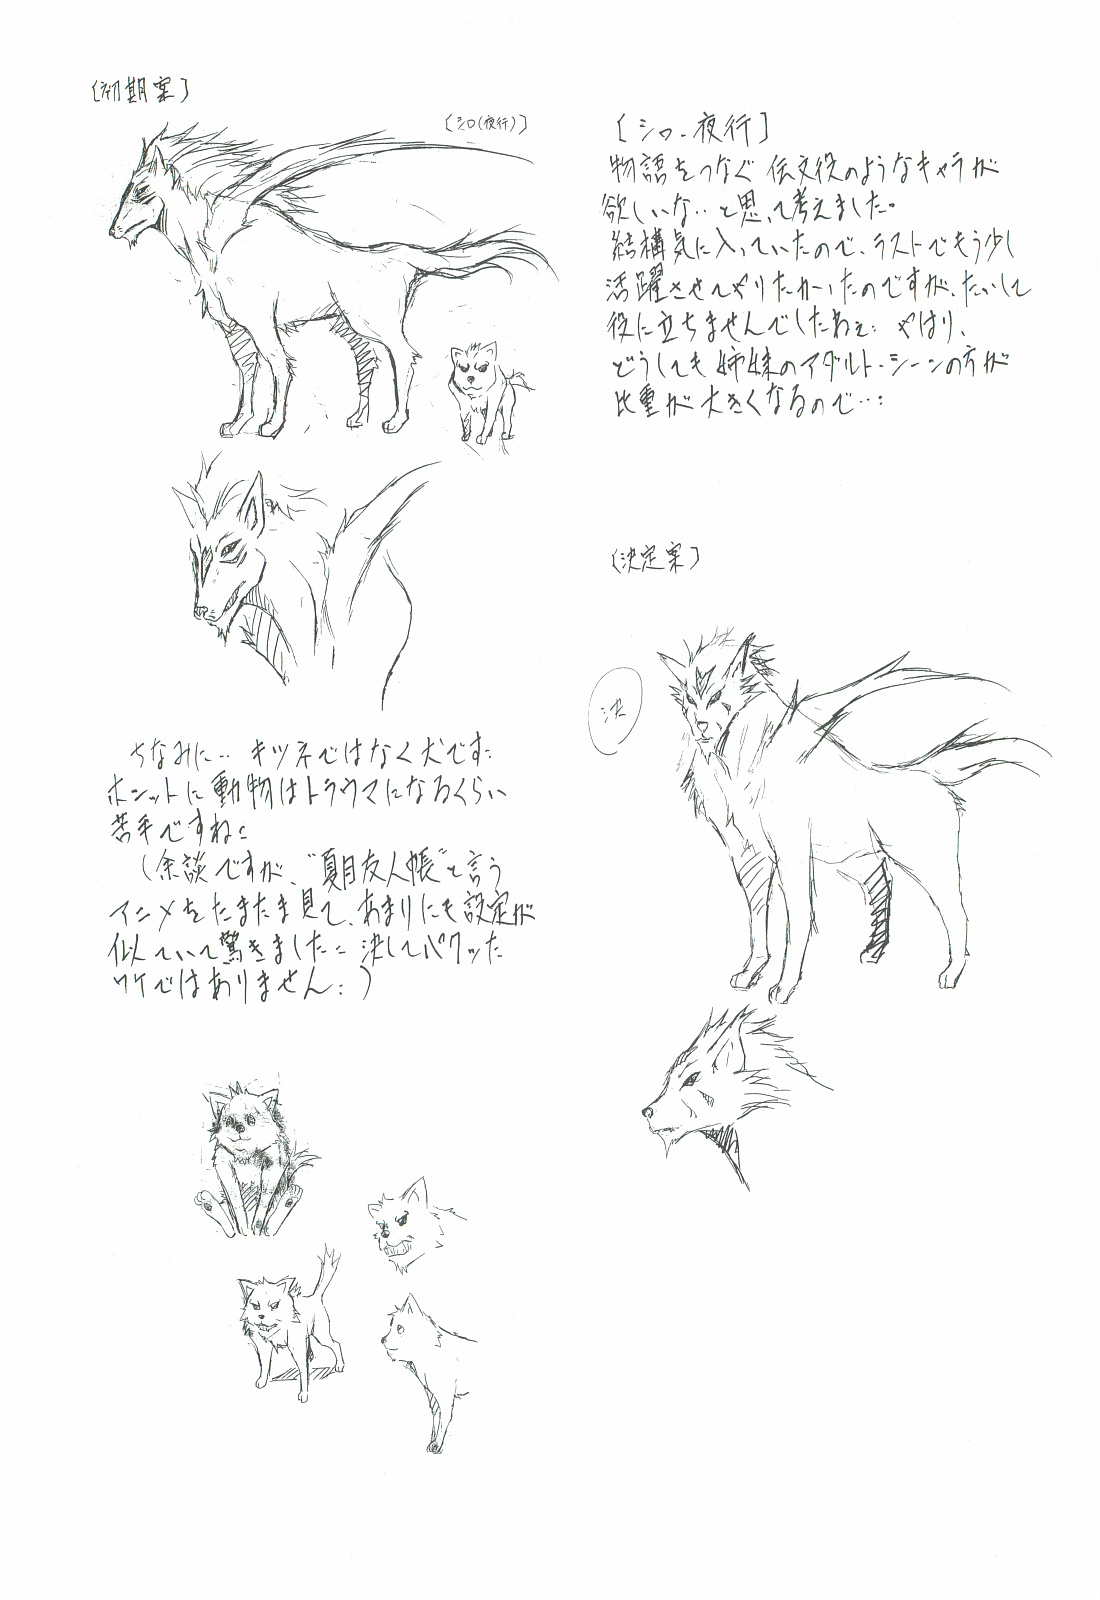 〔初期案〕
〔シロ(夜行)〕
〔シロ・夜行〕
物語をつなぐ伝文役のようなキャラが
欲しいな‥と思って考えました。
結構気に入っていたので、ラストでもう少し
活躍させてやりたかったのですが、たいして
役に立ちませんでしたねぇ: やはり、
どうしても姉妹のアダルト・シーンの方が
比重が大きくなるので…:
〔決定案〕
決
ちなみに‥キツネではなく犬です:
ホンットに動物はトラウマになるくらい
苦手ですね:
(余談ですが、"夏目友人帳"と言う
アニメをたまたま見て、あまりにも設定が
似ていて驚きました: 決してパクッた
ワケではありません:)